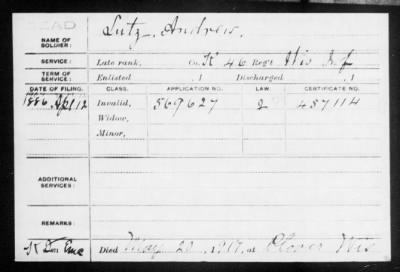 DEAD
NAME OF SOLDIER: Lutz, Andrew.
SERVICE: Late rank, Co. K 46 Reg't Wis Inf
TERM OF SERVICE: Enlisted , 1 Discharged , 1
DATE OF FILING. CLASS. APPLICATION NO. LAW. CERTIFICATE NO.
1886 Apl 12 Invalid, 569627 J 437114
Widow,
Minor,
ADDITIONAL SERVICES:
REMARKS:
Died May 20, 1917, at Plover Wis